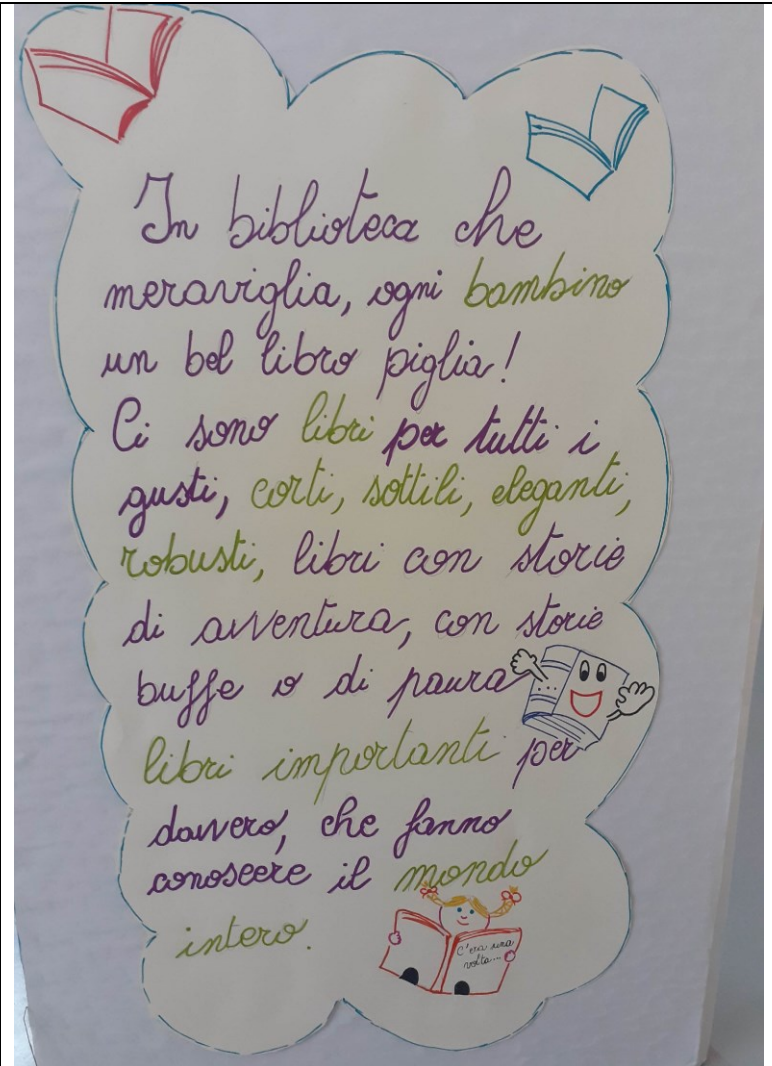 In biblioteca che
meraviglia, ogni bambino
un bel libro piglia!
Ci sono libri per tutti i
gusti, corti, sottili, eleganti,
robusti, libri con storie
di avventura, con storie
buffe o di paura
libri importanti per
davvero, che fanno
conoscere il mondo
intero.
C'era una
volta...